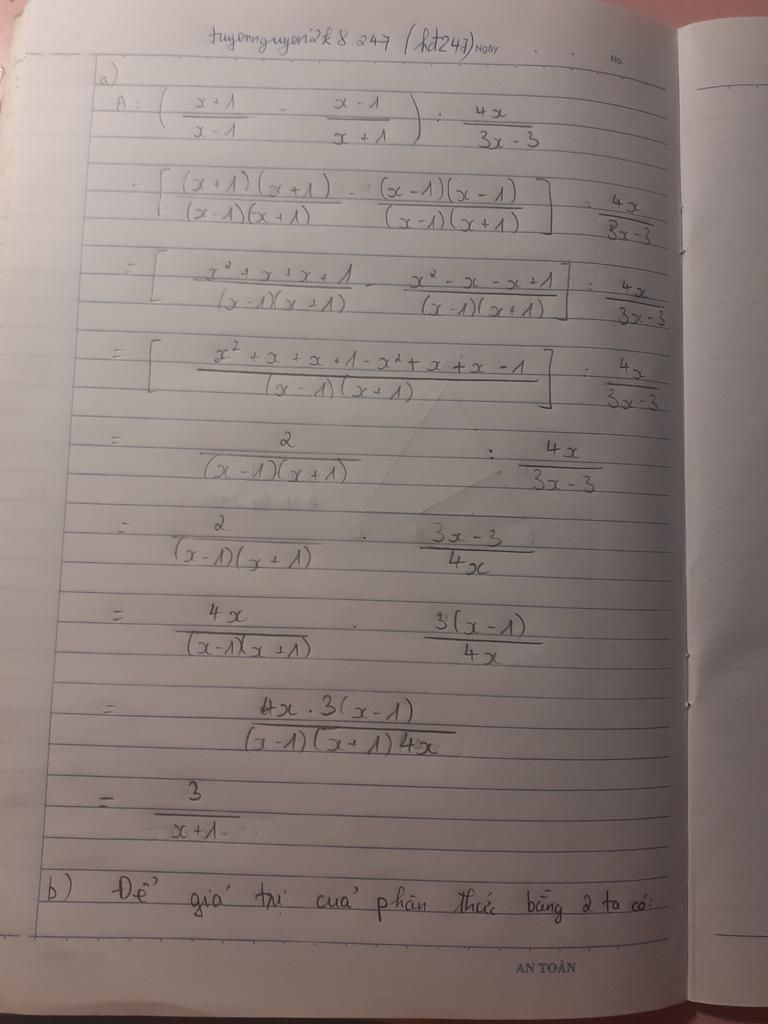 tuyennguyen2k8 247 (hd247) Ngày No.
a)
A = ( x+1 / x-1 - x-1 / x+1 ) : 4x / 3x-3
= [ (x+1)(x+1) / (x-1)(x+1) - (x-1)(x-1) / (x-1)(x+1) ] : 4x / 3x-3
= [ x² + x + x + 1 / (x-1)(x+1) - x² - x - x + 1 / (x-1)(x+1) ] : 4x / 3x-3
= [ x² + x + x + 1 - x² + x + x - 1 / (x-1)(x+1) ] : 4x / 3x-3
= 2 / (x-1)(x+1) : 4x / 3x-3
= 2 / (x-1)(x+1) . 3x-3 / 4x
= 4x / (x-1)(x+1) . 3(x-1) / 4x
= 4x . 3(x-1) / (x-1)(x+1) 4x
= 3 / x+1
b) Để giá trị của phân thức bằng 2 ta có:
AN TOÀN